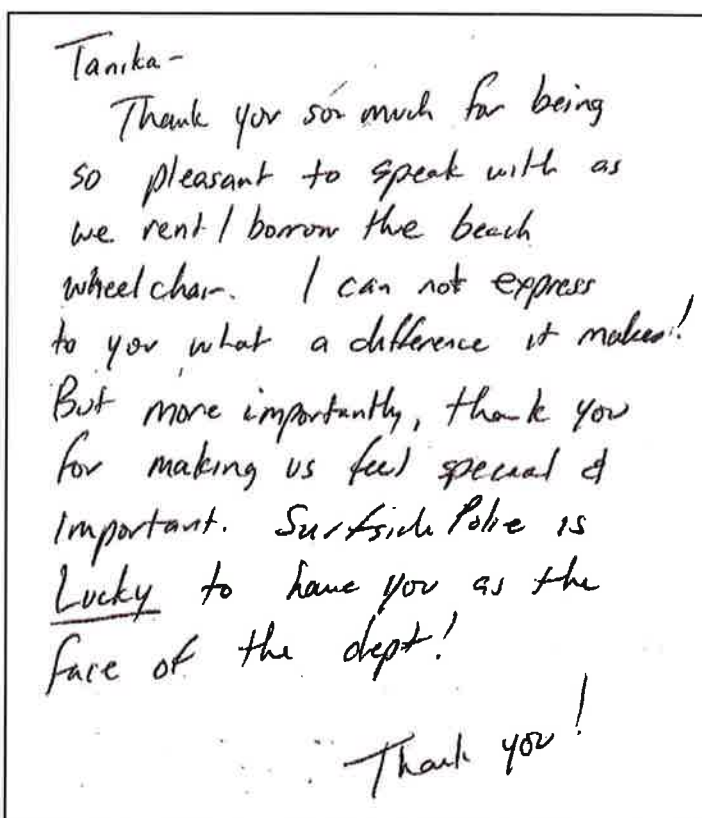 Tanika-
Thank you so much for being
so pleasant to speak with as
we rent/borrow the beach
wheelchair. I can not express
to you what a difference it makes!
But more importantly, thank you
for making us feel special &
important. Surfside Police is
Lucky to have you as the
face of the dept!
Thank you!